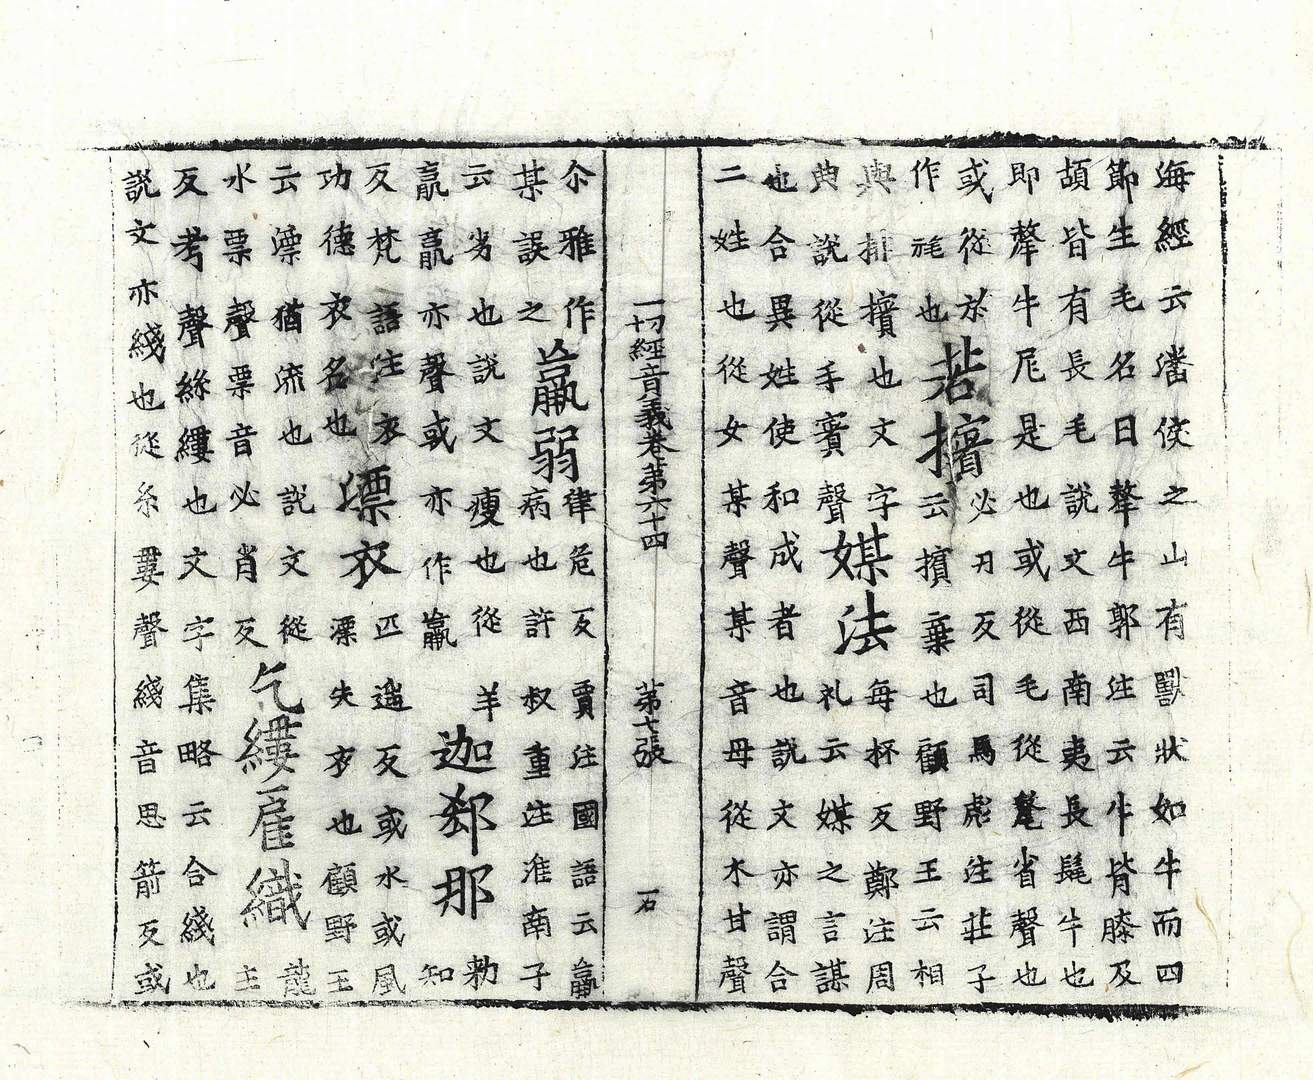 海經云潘侯之山有獸狀如牛而四
節生毛名曰犛牛郭注云牛背膝及
頡皆有長毛說文西南夷長髦牛也
即犛牛尾是也或從毛從氂省聲也
或從㫃 必刃反司馬彪注莊子
作䍸也 若擯 云擯棄也顧野王云相
與排擯也文字 每杯反鄭注周
典說從手賓聲 媒法 礼云媒之言謀
也合異姓使和成者也說文亦謂合
二姓也從女某聲某音母從木甘聲
一切經音義卷第六十四 第七張 石
尒雅作 律危反賈注國語云羸
某誤之 羸弱 病也許叔重注淮南子
云劣也說文瘦也從羊 勑知
羸羸亦聲或亦作羸 迦郄那
反梵語注衣 匹遥反或水或風
功德衣名也 漂衣 漂失衣也顧野王
云漂猶流也說文從 龍
水票聲票音必肖反 乞縷雇織 主
反考聲絲縷也文字集略云合綫也
說文亦綫也從糸婁聲綫音思箭反或